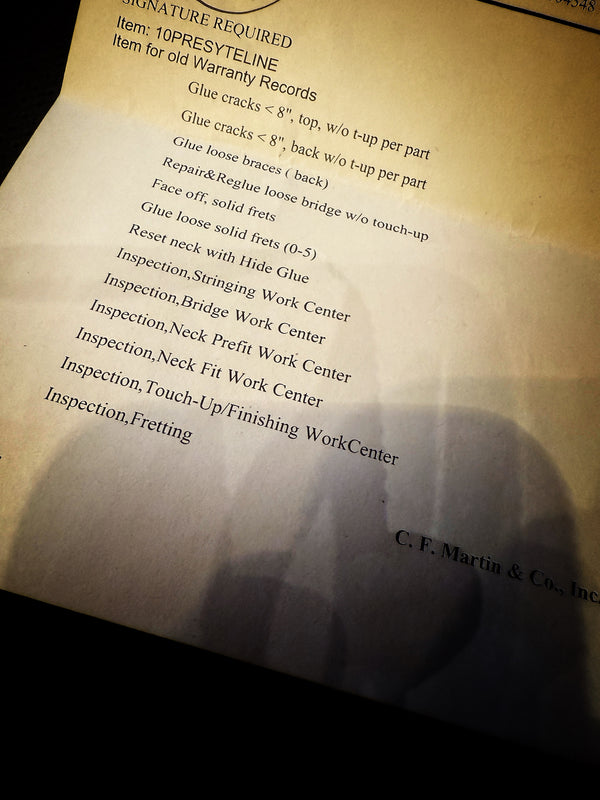 SIGNATURE REQUIRED
Item: 10PRESYTELINE
Item for old Warranty Records
Glue cracks < 8", top, w/o t-up per part
Glue cracks < 8", back w/o t-up per part
Glue loose braces ( back)
Repair&Reglue loose bridge w/o touch-up
Face off, solid frets
Glue loose solid frets (0-5)
Reset neck with Hide Glue
Inspection,Stringing Work Center
Inspection,Bridge Work Center
Inspection,Neck Prefit Work Center
Inspection,Neck Fit Work Center
Inspection,Touch-Up/Finishing WorkCenter
Inspection,Fretting
C. F. Martin & Co., Inc.